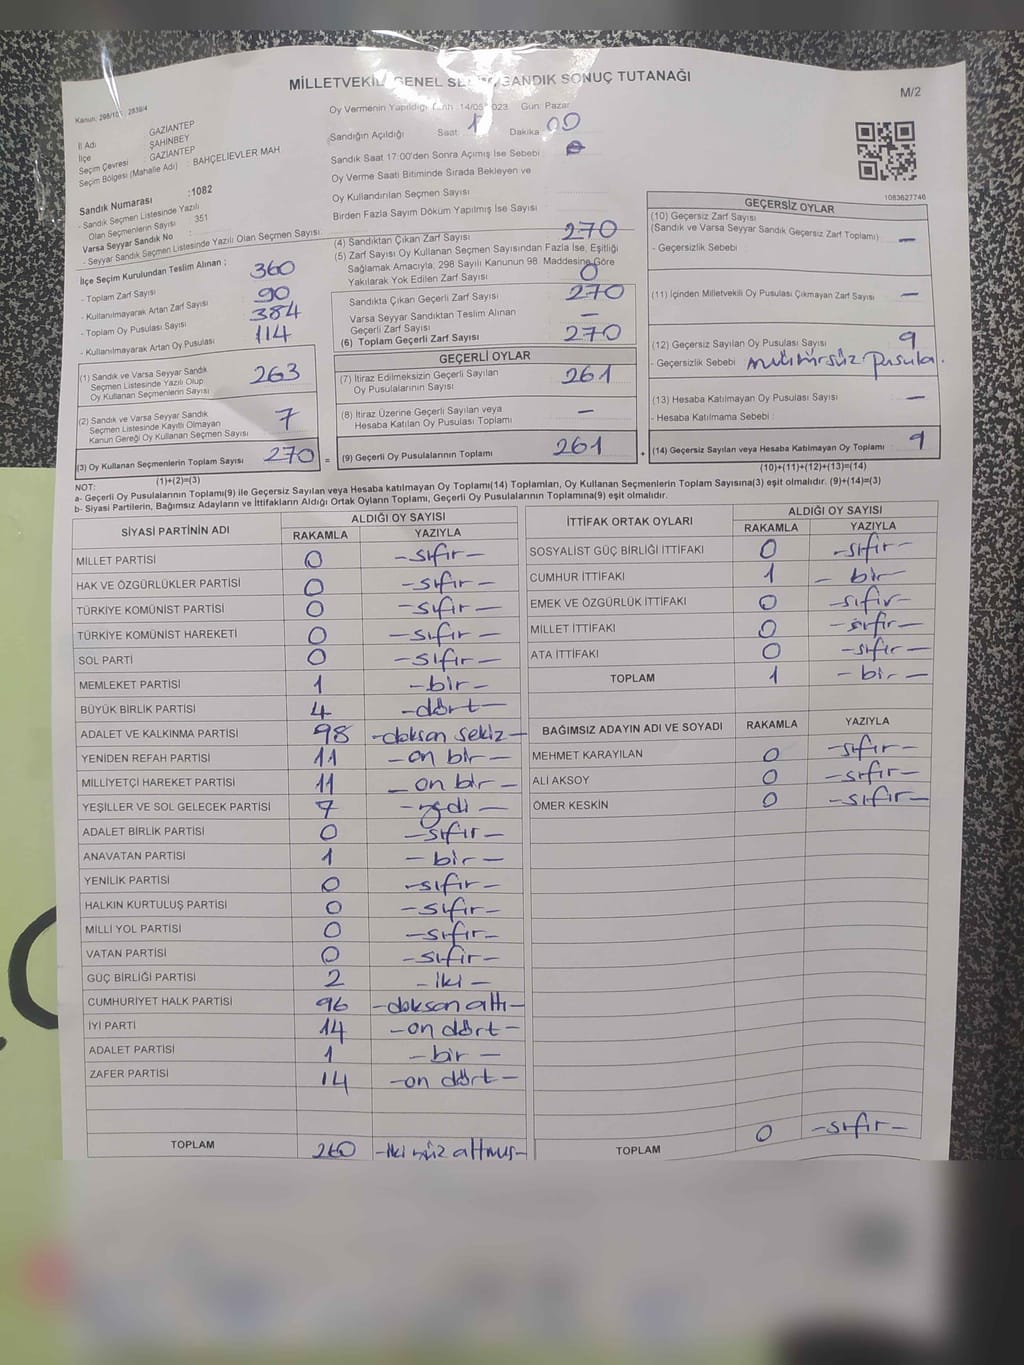 MİLLETVEKİLİ GENEL SEÇİMİ SANDIK SONUÇ TUTANAĞI
M/2
Kanun: 298/105, 2839/4
İl Adı : GAZİANTEP
İlçe : ŞAHİNBEY
Seçim Çevresi : GAZİANTEP
Seçim Bölgesi (Mahalle Adı) : BAHÇELİEVLER MAH
Sandık Numarası :1082
- Sandık Seçmen Listesinde Yazılı
Olan Seçmenlerin Sayısı : 351
Varsa Seyyar Sandık No :
- Seyyar Sandık Seçmen Listesinde Yazılı Olan Seçmen Sayısı
İlçe Seçim Kurulundan Teslim Alınan ;
- Toplam Zarf Sayısı 360
- Kullanılmayarak Artan Zarf Sayısı 90
- Toplam Oy Pusulası Sayısı 384
- Kullanılmayarak Artan Oy Pusulası 114
(1) Sandık ve Varsa Seyyar Sandık
Seçmen Listesinde Yazılı Olup
Oy Kullanan Seçmenlerin Sayısı 263
(2) Sandık ve Varsa Seyyar Sandık
Seçmen Listesinde Kayıtlı Olmayan
Kanun Gereği Oy Kullanan Seçmen Sayısı 7
(3) Oy Kullanan Seçmenlerin Toplam Sayısı 270 =
(1)+(2)=(3)
Oy Vermenin Yapıldığı Tarih 14/05/2023 Gün: Pazar
Sandığın Açıldığı Saat Dakika 00
Sandık Saat 17:00'den Sonra Açımış İse Sebebi
Oy Verme Saati Bitiminde Sırada Bekleyen ve
Oy Kullandırılan Seçmen Sayısı
Birden Fazla Sayım Döküm Yapılmış İse Sayısı
(4) Sandıktan Çıkan Zarf Sayısı 270
(5) Zarf Sayısı Oy Kullanan Seçmen Sayısından Fazla İse, Eşitliği
Sağlamak Amacıyla, 298 Sayılı Kanunun 98. Maddesine Göre
Yakılarak Yok Edilen Zarf Sayısı 0
Sandıkta Çıkan Geçerli Zarf Sayısı 270
Varsa Seyyar Sandıktan Teslim Alınan
Geçerli Zarf Sayısı —
(6) Toplam Geçerli Zarf Sayısı 270
GEÇERLİ OYLAR
(7) İtiraz Edilmeksizin Geçerli Sayılan
Oy Pusulalarının Sayısı 261
(8) İtiraz Üzerine Geçerli Sayılan veya
Hesaba Katılan Oy Pusulası Toplamı —
(9) Geçerli Oy Pusulalarının Toplamı 261 +
1083627746
GEÇERSİZ OYLAR
(10) Geçersiz Zarf Sayısı
(Sandık ve Varsa Seyyar Sandık Geçersiz Zarf Toplamı) —
- Geçersizlik Sebebi :
(11) İçinden Milletvekili Oy Pusulası Çıkmayan Zarf Sayısı —
(12) Geçersiz Sayılan Oy Pusulası Sayısı 9
- Geçersizlik Sebebi mühürsüz pusula.
(13) Hesaba Katılmayan Oy Pusulası Sayısı —
- Hesaba Katılmama Sebebi :
(14) Geçersiz Sayılan veya Hesaba Katılmayan Oy Toplamı 9
(10)+(11)+(12)+(13)=(14)
NOT:
a- Geçerli Oy Pusulalarının Toplamı(9) ile Geçersiz Sayılan veya Hesaba katılmayan Oy Toplamı(14) Toplamları, Oy Kullanan Seçmenlerin Toplam Sayısına(3) eşit olmalıdır. (9)+(14)=(3)
b- Siyasi Partilerin, Bağımsız Adayların ve İttifakların Aldığı Ortak Oyların Toplamı, Geçerli Oy Pusulalarının Toplamına(9) eşit olmalıdır.
SİYASİ PARTİNİN ADI ALDIĞI OY SAYISI
RAKAMLA YAZIYLA
MİLLET PARTİSİ 0 -sıfır-
HAK VE ÖZGÜRLÜKLER PARTİSİ 0 -sıfır-
TÜRKİYE KOMÜNİST PARTİSİ 0 -sıfır-
TÜRKİYE KOMÜNİST HAREKETİ 0 -sıfır-
SOL PARTİ 0 -sıfır-
MEMLEKET PARTİSİ 1 -bir-
BÜYÜK BİRLİK PARTİSİ 4 -dört-
ADALET VE KALKINMA PARTİSİ 98 -doksan sekiz-
YENİDEN REFAH PARTİSİ 11 -on bir-
MİLLİYETÇİ HAREKET PARTİSİ 11 -on bir-
YEŞİLLER VE SOL GELECEK PARTİSİ 7 -yedi-
ADALET BİRLİK PARTİSİ 0 -sıfır-
ANAVATAN PARTİSİ 1 -bir-
YENİLİK PARTİSİ 0 -sıfır-
HALKIN KURTULUŞ PARTİSİ 0 -sıfır-
MİLLİ YOL PARTİSİ 0 -sıfır-
VATAN PARTİSİ 0 -sıfır-
GÜÇ BİRLİĞİ PARTİSİ 2 -iki-
CUMHURİYET HALK PARTİSİ 96 -doksan altı-
İYİ PARTİ 14 -on dört-
ADALET PARTİSİ 1 -bir-
ZAFER PARTİSİ 14 -on dört-
TOPLAM 260 -iki yüz altmış-
İTTİFAK ORTAK OYLARI ALDIĞI OY SAYISI
RAKAMLA YAZIYLA
SOSYALİST GÜÇ BİRLİĞİ İTTİFAKI 0 -sıfır-
CUMHUR İTTİFAKI 1 - bir-
EMEK VE ÖZGÜRLÜK İTTİFAKI 0 -sıfır-
MİLLET İTTİFAKI 0 -sıfır-
ATA İTTİFAKI 0 -sıfır-
TOPLAM 1 - bir-
BAĞIMSIZ ADAYIN ADI VE SOYADI RAKAMLA YAZIYLA
MEHMET KARAYILAN 0 -sıfır-
ALİ AKSOY 0 -sıfır-
ÖMER KESKİN 0 -sıfır-
TOPLAM 0 -sıfır-